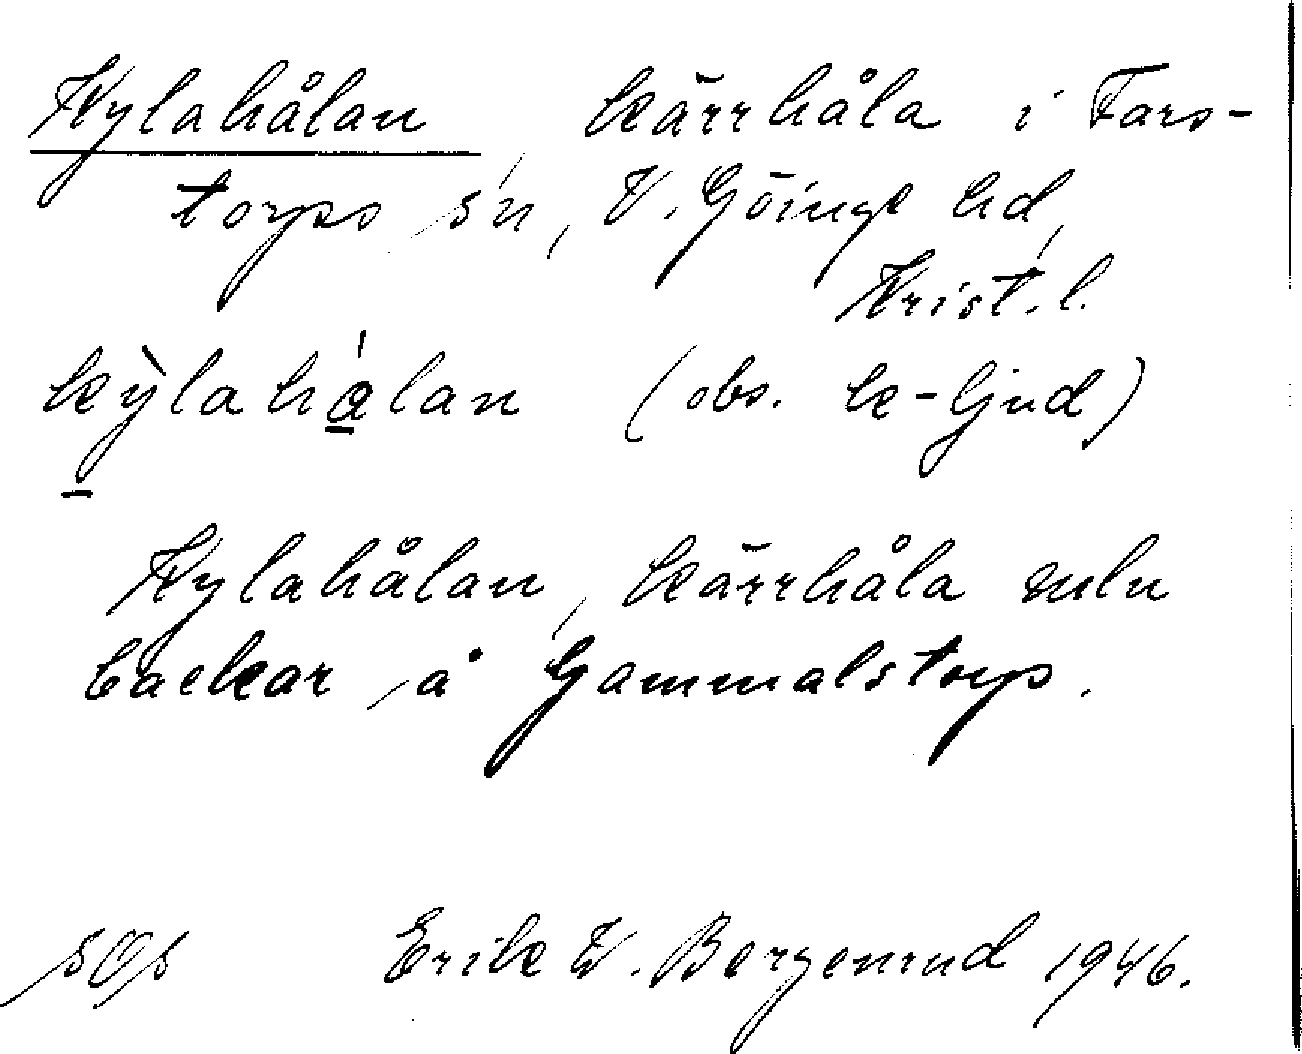 Kylahålan, kärrhåla i Fars-
torps sn, V. Göinge hd,
Krist. l.
kỳlahálan (obs. k-ljud)
Kylahålan, kärrhåla mln
backar å Gammalstorp.
Erik W. Bergemud 1946.